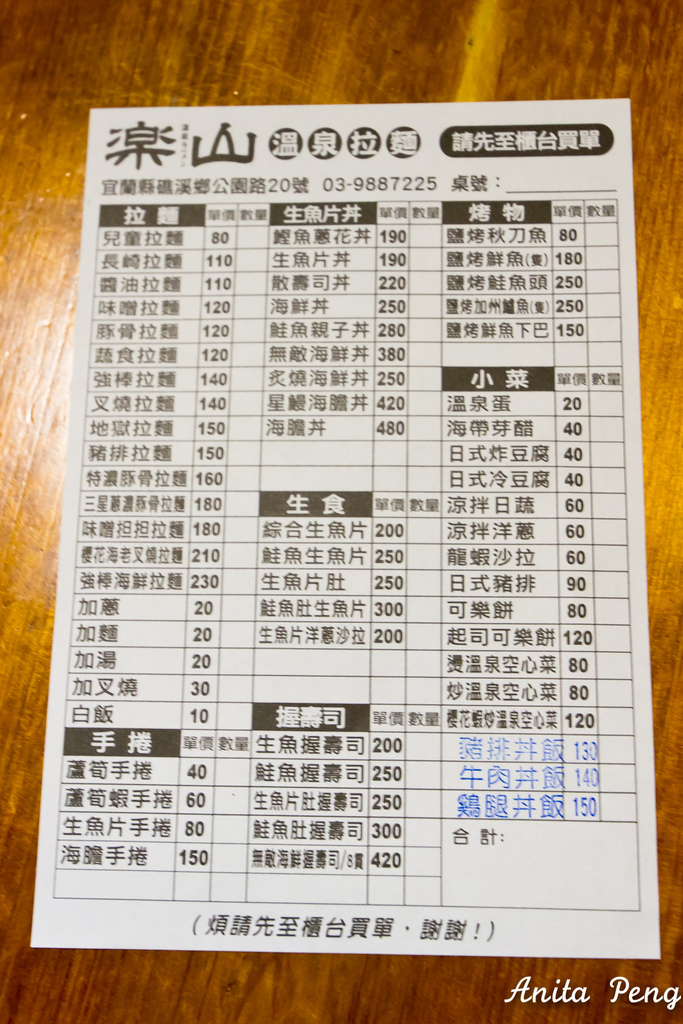 楽山 溫泉拉麵 請先至櫃台買單
宜蘭縣礁溪鄉公園路20號 03-9887225 桌號：
拉麵 單價 數量
兒童拉麵 80
長崎拉麵 110
醬油拉麵 110
味噌拉麵 120
豚骨拉麵 120
蔬食拉麵 120
強棒拉麵 140
叉燒拉麵 140
地獄拉麵 150
豬排拉麵 150
特濃豚骨拉麵 160
三星蔥濃豚骨拉麵 180
味噌担担拉麵 180
櫻花海老叉燒拉麵 210
強棒海鮮拉麵 230
加蔥 20
加麵 20
加湯 20
加叉燒 30
白飯 10
手捲 單價 數量
蘆筍手捲 40
蘆筍蝦手捲 60
生魚片手捲 80
海膽手捲 150
生魚片丼 單價 數量
鰹魚蔥花丼 190
生魚片丼 190
散壽司丼 220
海鮮丼 250
鮭魚親子丼 280
無敵海鮮丼 380
炙燒海鮮丼 250
星鰻海膽丼 420
海膽丼 480
生食 單價 數量
綜合生魚片 200
鮭魚生魚片 250
生魚片肚 250
鮭魚肚生魚片 300
生魚片洋蔥沙拉 200
握壽司 單價 數量
生魚握壽司 200
鮭魚握壽司 250
生魚片肚握壽司 250
鮭魚肚握壽司 300
無敵海鮮握壽司/8貫 420
烤物 單價 數量
鹽烤秋刀魚 80
鹽烤鮮魚(隻) 180
鹽烤鮭魚頭 250
鹽烤加州鱸魚(隻) 250
鹽烤鮮魚下巴 150
小菜 單價 數量
溫泉蛋 20
海帶芽醋 40
日式炸豆腐 40
日式冷豆腐 40
涼拌日蔬 60
涼拌洋蔥 60
龍蝦沙拉 60
日式豬排 90
可樂餅 80
起司可樂餅 120
燙溫泉空心菜 80
炒溫泉空心菜 80
櫻花蝦炒溫泉空心菜 120
豬排丼飯 130
牛肉丼飯 140
雞腿丼飯 150
合計：
(煩請先至櫃台買單，謝謝！)
Anita Peng